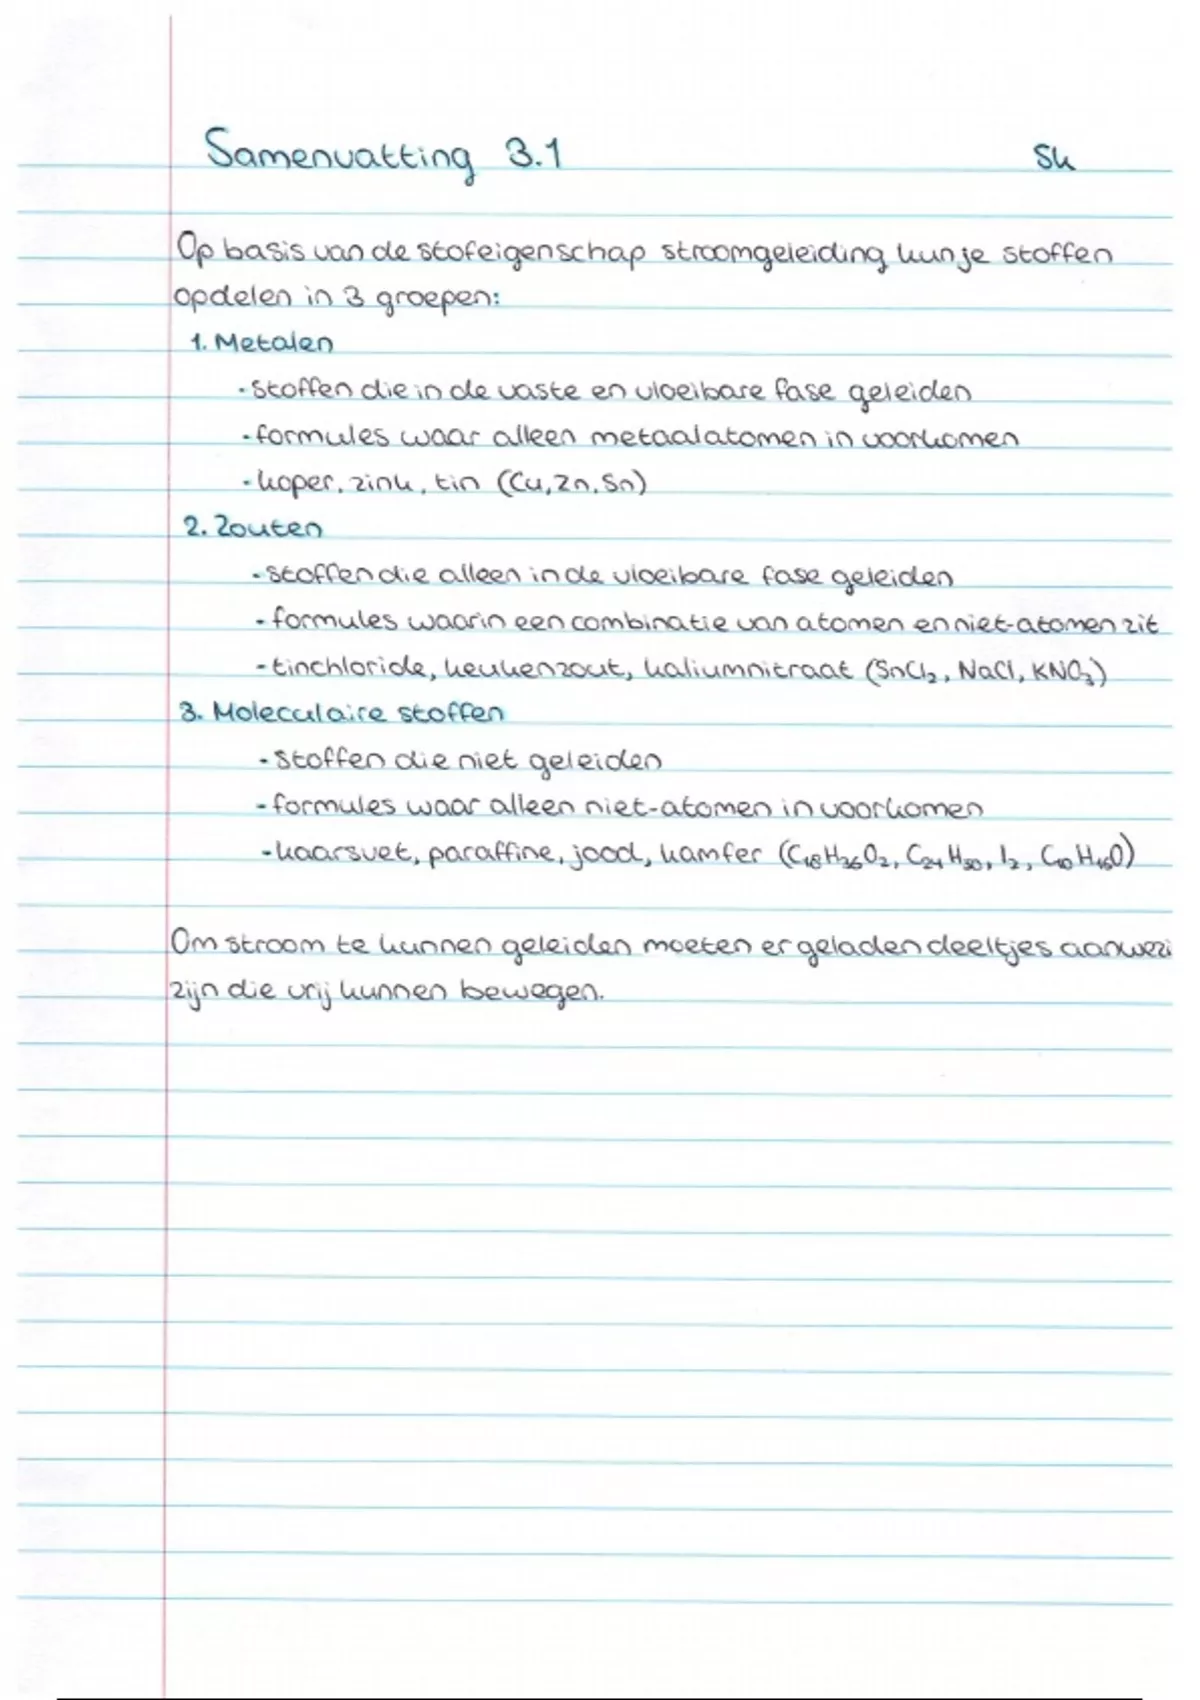 Samenvatting 3.1 Sk
Op basis van de stofeigenschap stroomgeleiding kun je stoffen
opdelen in 3 groepen:
1. Metalen
- stoffen die in de vaste en vloeibare fase geleiden
- formules waar alleen metaalatomen in voorkomen
- koper, zink, tin (Cu, Zn, Sn)
2. Zouten
- stoffen die alleen in de vloeibare fase geleiden
- formules waarin een combinatie van atomen en niet-atomen zit
- tinchloride, keukenzout, kaliumnitraat (SnCl₂, NaCl, KNO₃)
3. Moleculaire stoffen
- stoffen die niet geleiden
- formules waar alleen niet-atomen in voorkomen
- kaarsvet, paraffine, jood, kamfer (C₁₈H₃₆O₂, C₂₄H₅₀, I₂, C₁₀H₁₆O)
Om stroom te kunnen geleiden moeten er geladen deeltjes aanwezi
zijn die vrij kunnen bewegen.